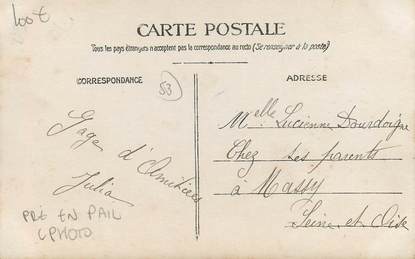 100€
CARTE POSTALE
Tous les pays étrangers n'acceptent pas la correspondance au recto (Se renseigner à la poste)
CORRESPONDANCE
ADRESSE
53
Gage
d'Amitiées
Julia
PRÉ EN PAIL
CPHOTO
Melle Lucienne Dourdoigne
Chez ses parents
à Massy
Seine et Oise